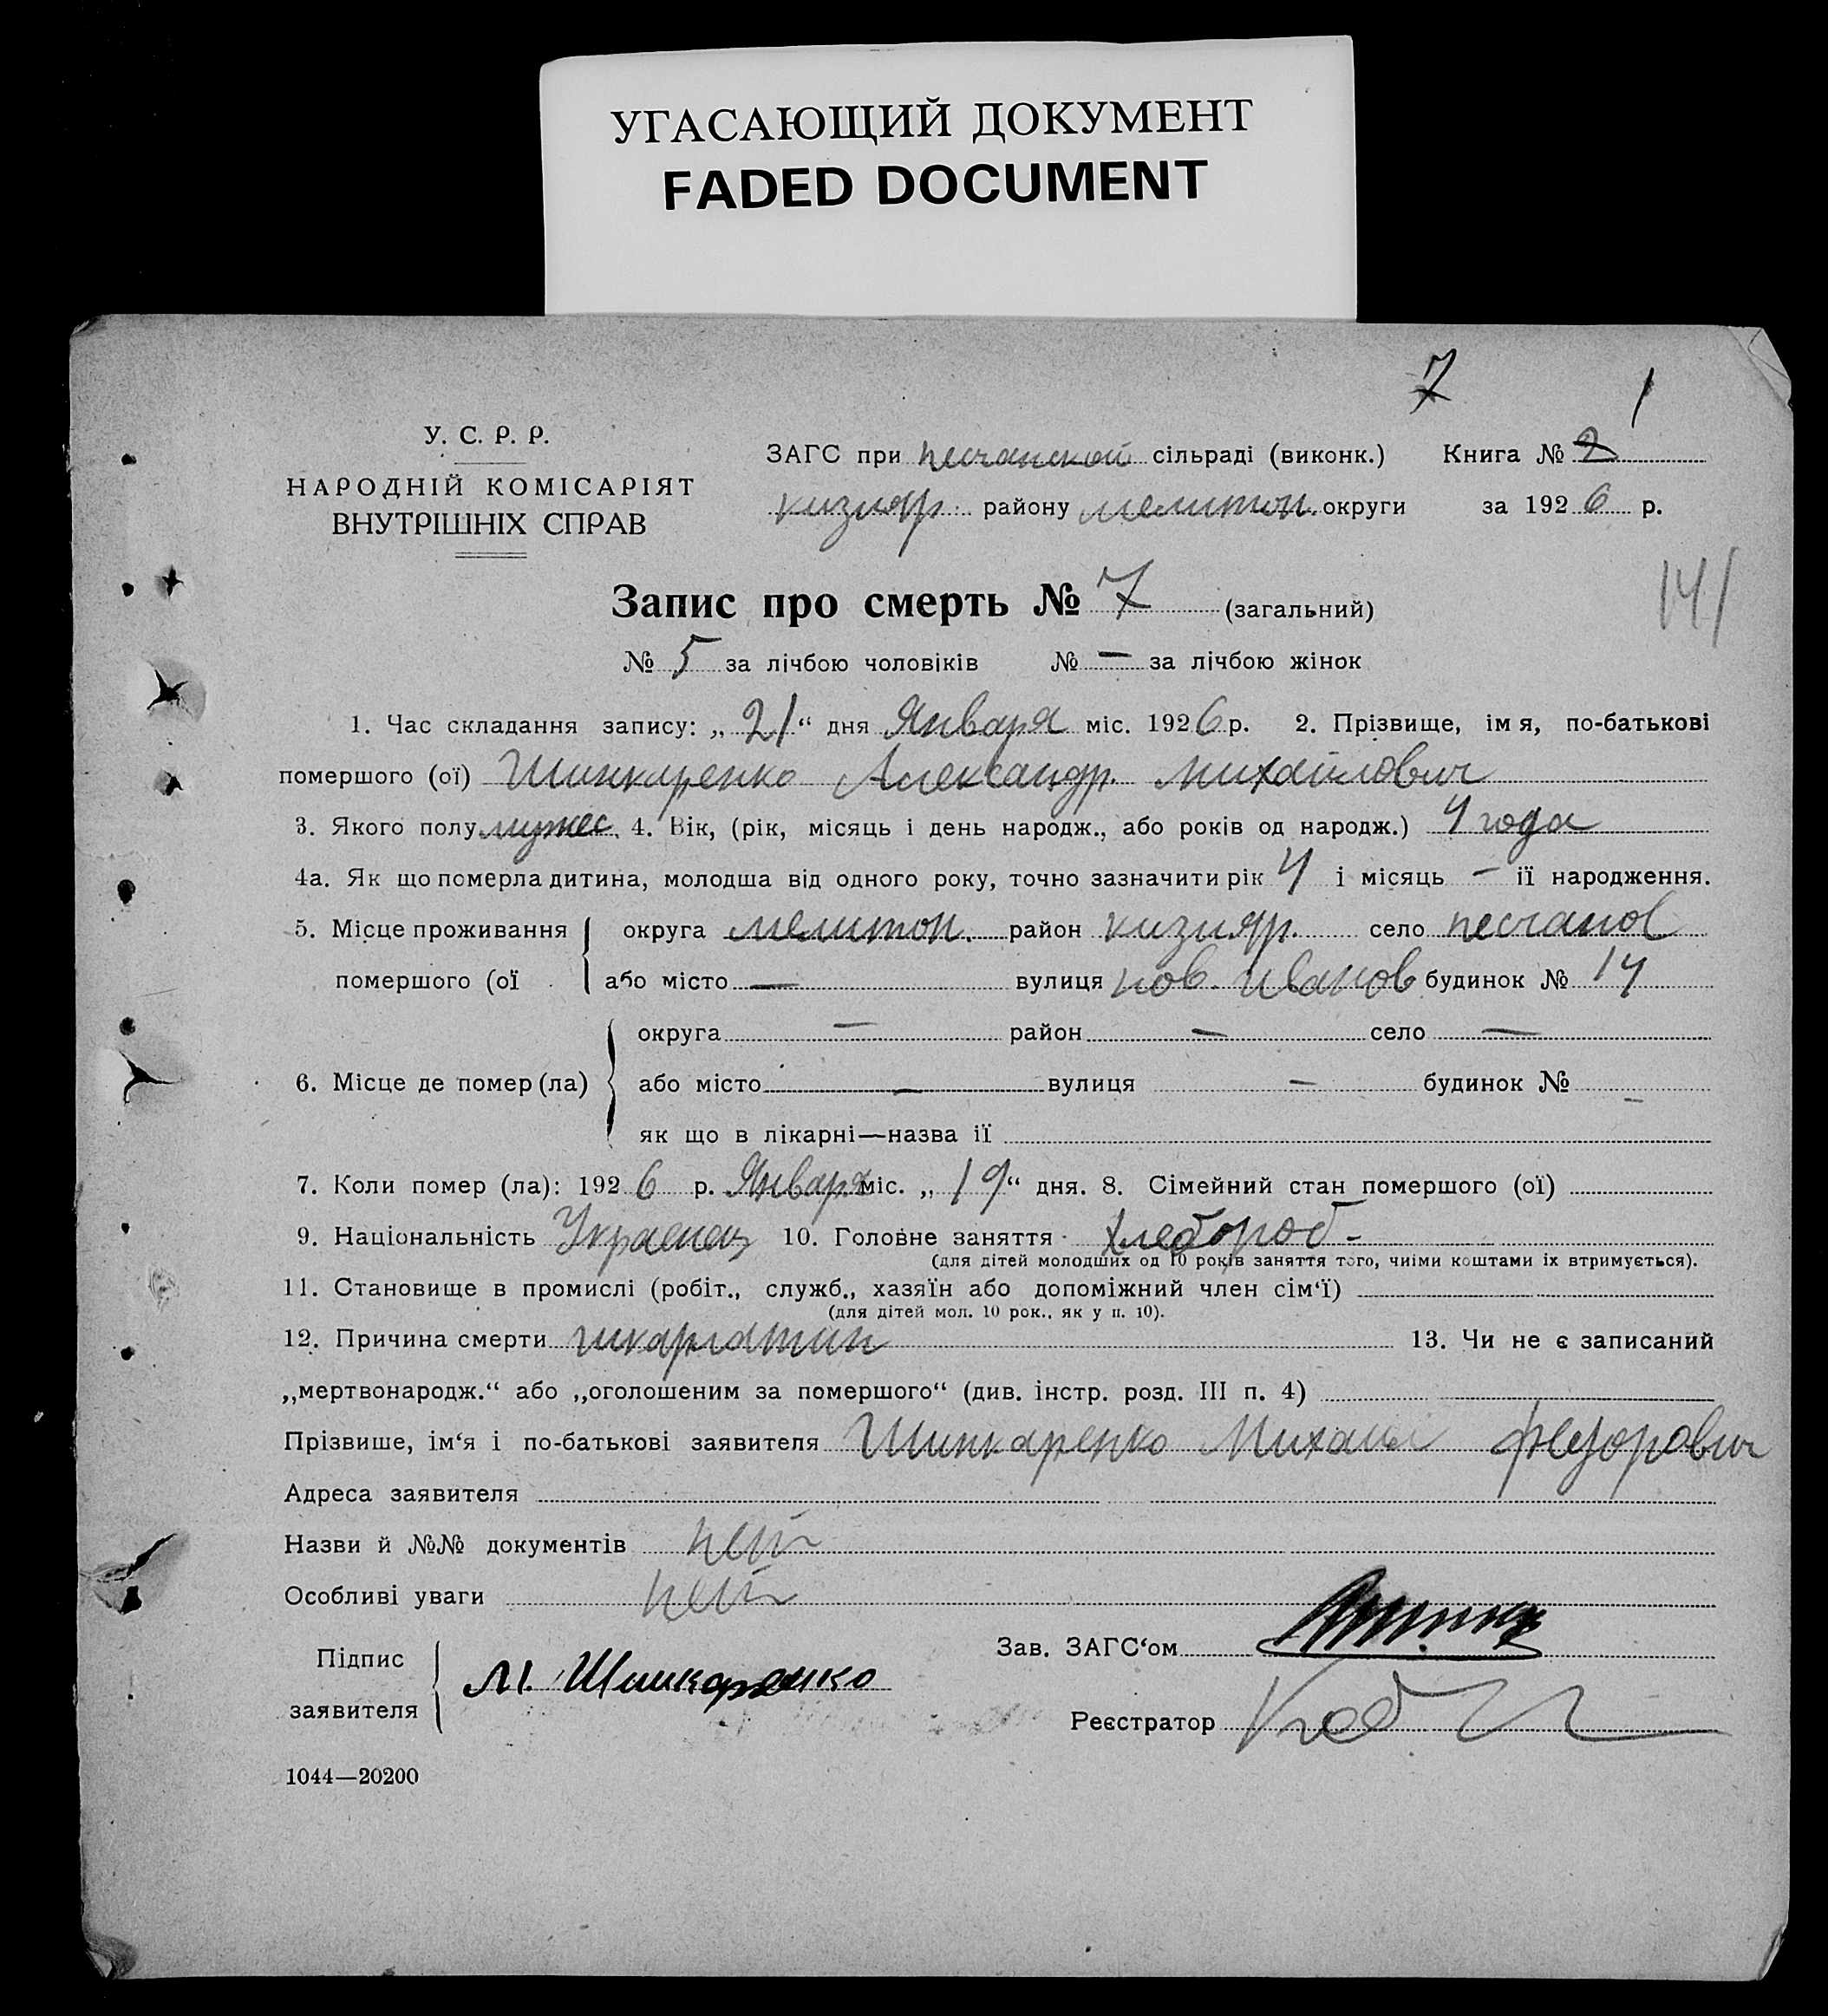 УГАСАЮЩИЙ ДОКУМЕНТ
FADED DOCUMENT
7 1
У. С. Р. Р.
НАРОДНІЙ КОМІСАРІЯТ
ВНУТРІШНІХ СПРАВ
ЗАГС при песчанской сільраді (виконк.) Книга № 2
кизияр. району мелитоп. округи за 1926 р.
141
Запис про смерть № 7 (загальний)
№ 5 за лічбою чоловіків № — за лічбою жінок
1. Час складання запису: „21“ дня Января міс. 1926 р. 2. Прізвище, імя, по-батькові
помершого (ої) Шинкаренко Александр Михайлович
3. Якого полу мужес. 4. Вік, (рік, місяць і день народж., або років од народж.) 4 года
4а. Як що померла дитина, молодша від одного року, точно зазначити рік 4 і місяць — її народження.
5. Місце проживання округа мелитоп. район кизияр. село песчаное
помершого (ої або місто — вулиця нов. Иванов будинок № 14
округа — район — село —
6. Місце де помер (ла) або місто — вулиця — будинок № —
як що в лікарні—назва її
7. Коли помер (ла): 1926 р. Января міс. „19“ дня. 8. Сімейний стан помершого (ої)
9. Національність Украенец 10. Головне заняття хлебороб -
(для дітей молодших од 10 років заняття того, чиїми коштами їх втримується).
11. Становище в промислі (робіт., служб., хазяїн або допоміжний член сім‘ї)
(для дітей мол. 10 рок., як у п. 10).
12. Причина смерти шкарлатин 13. Чи не є записаний
„мертвонародж.“ або „оголошеним за помершого“ (див. інстр. розд. III п. 4)
Прізвише, ім‘я і по-батькові заявителя Шинкаренко Михаил Федорович
Адреса заявителя
Назви й №№ документів нет
Особливі уваги нет
Підпис
заявителя М. Шинкаренко
Зав. ЗАГС‘ом
Реєстратор
1044—20200